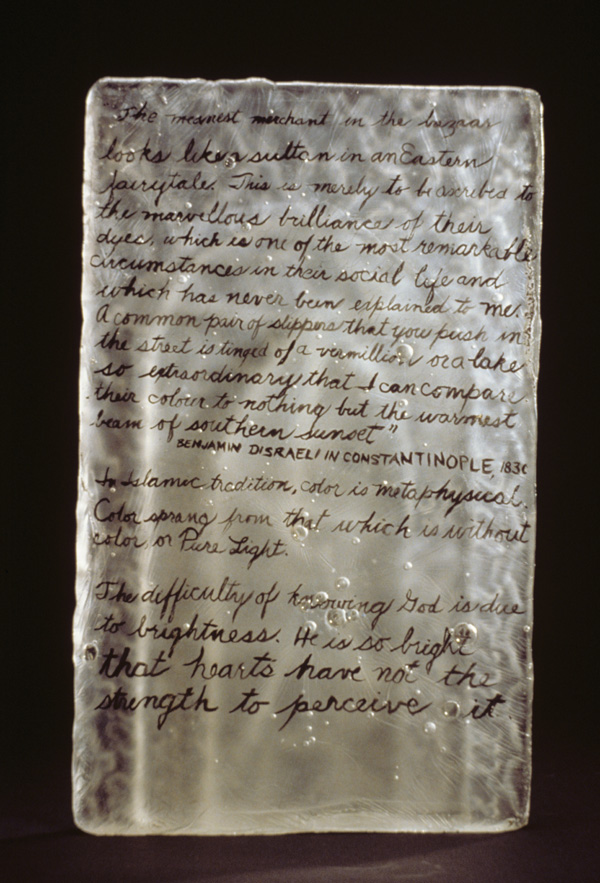 The meanest merchant in the bazaar
looks like a sultan in an Eastern
fairytale. This is merely to be ascribed to
the marvellous brilliance of their
dyes, which is one of the most remarkable
circumstances in their social life and
which has never been explained to me.
A common pair of slippers that you push in
the street is tinged of a vermillion or a lake
so extraordinary that I can compare
their colour to nothing but the warmest
beam of southern sunset"
BENJAMIN DISRAELI IN CONSTANTINOPLE, 1830
In Islamic tradition, color is metaphysical.
Color sprang from that which is without
color, or Pure Light.
The difficulty of knowing God is due
to brightness. He is so bright
that hearts have not the
strength to perceive it.